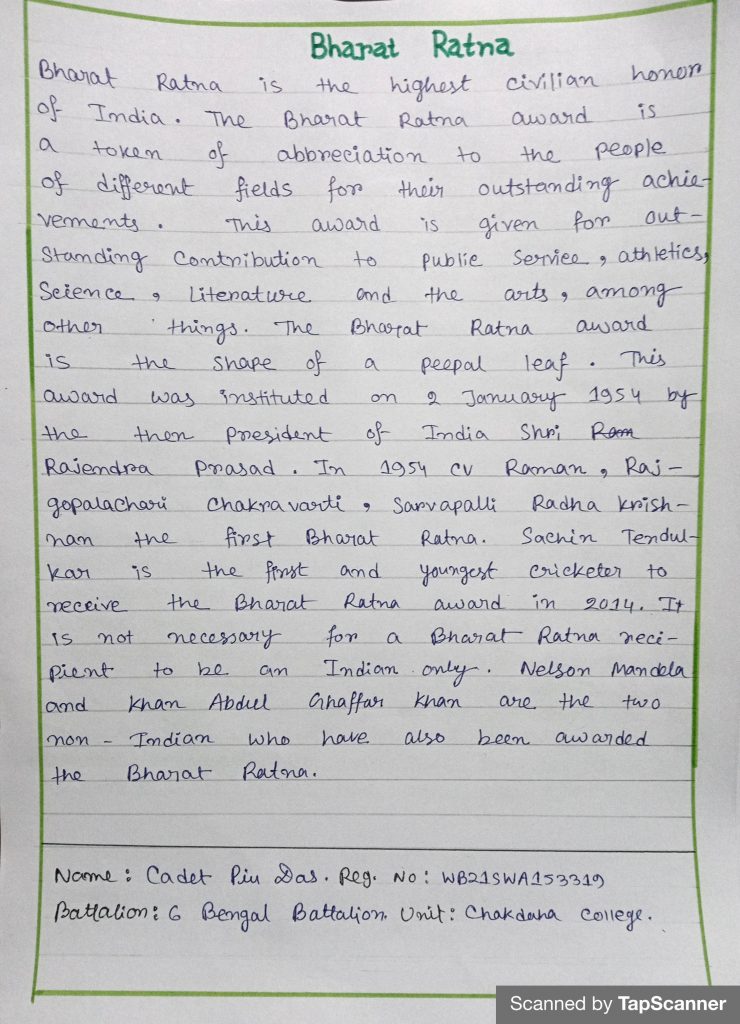 Bharat Ratna
Bharat Ratna is the highest civilian honor
of India. The Bharat Ratna award is
a token of abbreciation to the people
of different fields for their outstanding achie-
vements. This award is given for out-
standing contribution to public service, athletics,
Science, Literature and the arts, among
other things. The Bharat Ratna award
is the shape of a peepal leaf. This
award was instituted on 2 January 1954 by
the then president of India Shri Ram
Rajendra Prasad. In 1954 CV Raman, Raj-
gopalachari Chakravarti, Sarvapalli Radha krish-
nan the first Bharat Ratna. Sachin Tendul-
kar is the first and youngest cricketer to
receive the Bharat Ratna award in 2014. It
is not necessary for a Bharat Ratna reci-
pient to be an Indian only. Nelson Mandela
and Khan Abdul Ghaffar Khan are the two
non-Indian who have also been awarded
the Bharat Ratna.
Name: Cadet Piu Das. Reg. No: WB21SWA153319
Battalion: 6 Bengal Battalion. Unit: Chakdaha College.
Scanned by TapScanner